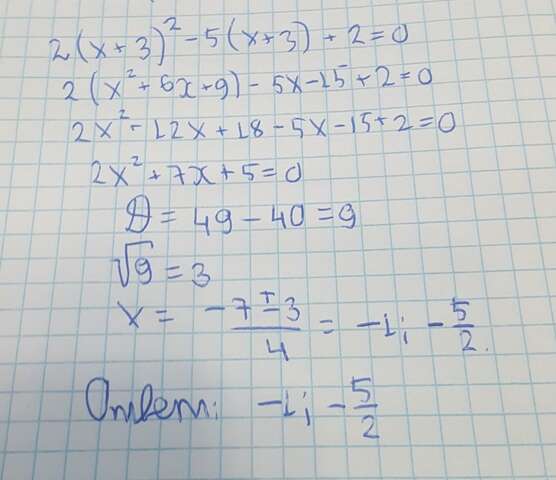 2(x+3)² - 5(x+3) + 2 = 0
2(x² + 6x + 9) - 5x - 15 + 2 = 0
2x² - 12x + 18 - 5x - 15 + 2 = 0
2x² + 7x + 5 = 0
D = 49 - 40 = 9
√9 = 3
x = (-7 ± 3)/4 = -1; -5/2.
Ответ: -1; -5/2